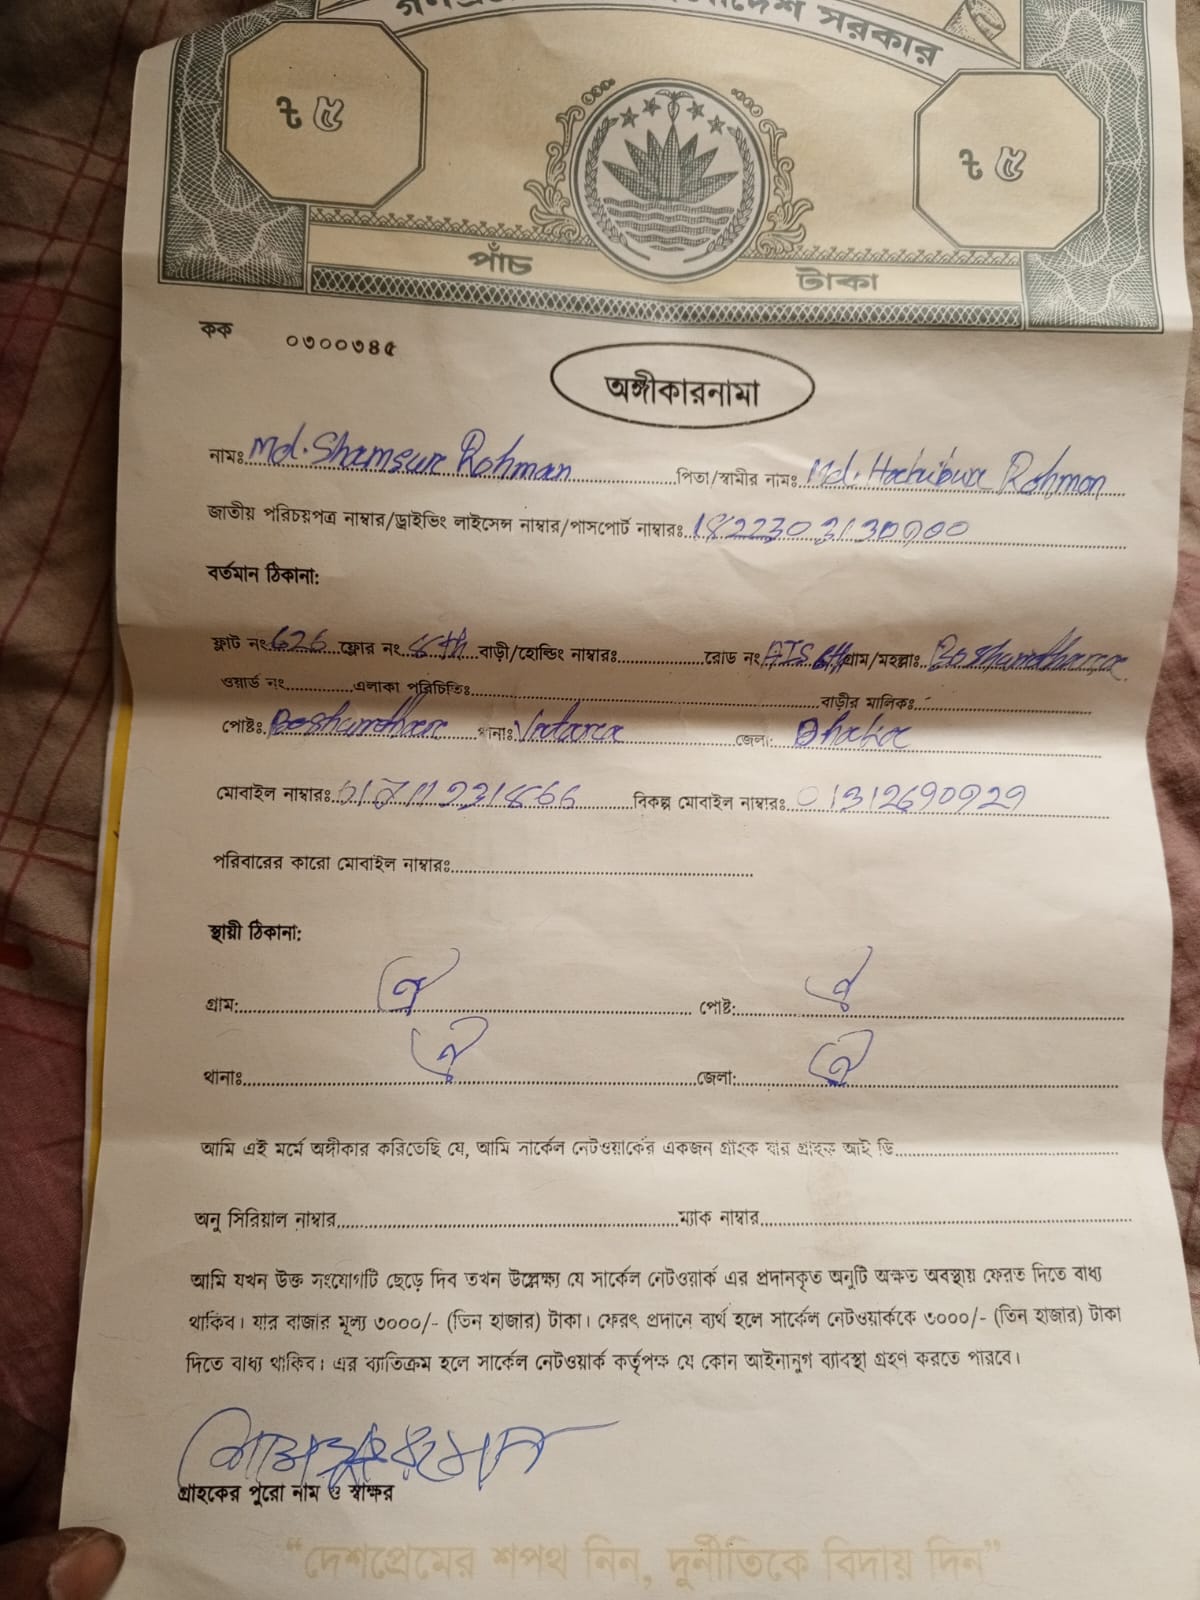 সরকার
৳ ৫ ৳ ৫
পাঁচ টাকা
কক ০৩০০৩৪৫
অঙ্গীকারনামা
নামঃ Md. Shamsur Rohman পিতা/স্বামীর নামঃ Md. Rohman
জাতীয় পরিচয়পত্র নাম্বার/ড্রাইভিং লাইসেন্স নাম্বার/পাসপোর্ট নাম্বারঃ
বর্তমান ঠিকানা:
ফ্লাট নং 626 ফ্লোর নং বাড়ী/হোল্ডিং নাম্বারঃ রোড নং গ্রাম/মহল্লাঃ
ওয়ার্ড নং এলাকা পরিচিতিঃ বাড়ীর মালিকঃ
পোষ্টঃ থানাঃ Vatara জেলা: Dhaka
মোবাইল নাম্বারঃ বিকল্প মোবাইল নাম্বারঃ
পরিবারের কারো মোবাইল নাম্বারঃ
স্থায়ী ঠিকানা:
গ্রাম: ঐ পোষ্ট: ঐ
থানাঃ ঐ জেলা: ঐ
আমি এই মর্মে অঙ্গীকার করিতেছি যে, আমি সার্কেল নেটওয়ার্কের একজন গ্রাহক যার গ্রাহক আই ডি
অনু সিরিয়াল নাম্বার ম্যাক নাম্বার
আমি যখন উক্ত সংযোগটি ছেড়ে দিব তখন উল্লেক্ষ্য যে সার্কেল নেটওয়ার্ক এর প্রদানকৃত অনুটি অক্ষত অবস্থায় ফেরত দিতে বাধ্য
থাকিব। যার বাজার মূল্য ৩০০০/- (তিন হাজার) টাকা। ফেরৎ প্রদানে ব্যর্থ হলে সার্কেল নেটওয়ার্ককে ৩০০০/- (তিন হাজার) টাকা
দিতে বাধ্য থাকিব। এর ব্যাতিক্রম হলে সার্কেল নেটওয়ার্ক কর্তৃপক্ষ যে কোন আইনানুগ ব্যাবস্থা গ্রহণ করতে পারবে।
গ্রাহকের পুরো নাম ও স্বাক্ষর
“দেশপ্রেমের শপথ নিন, দুর্নীতিকে বিদায় দিন”